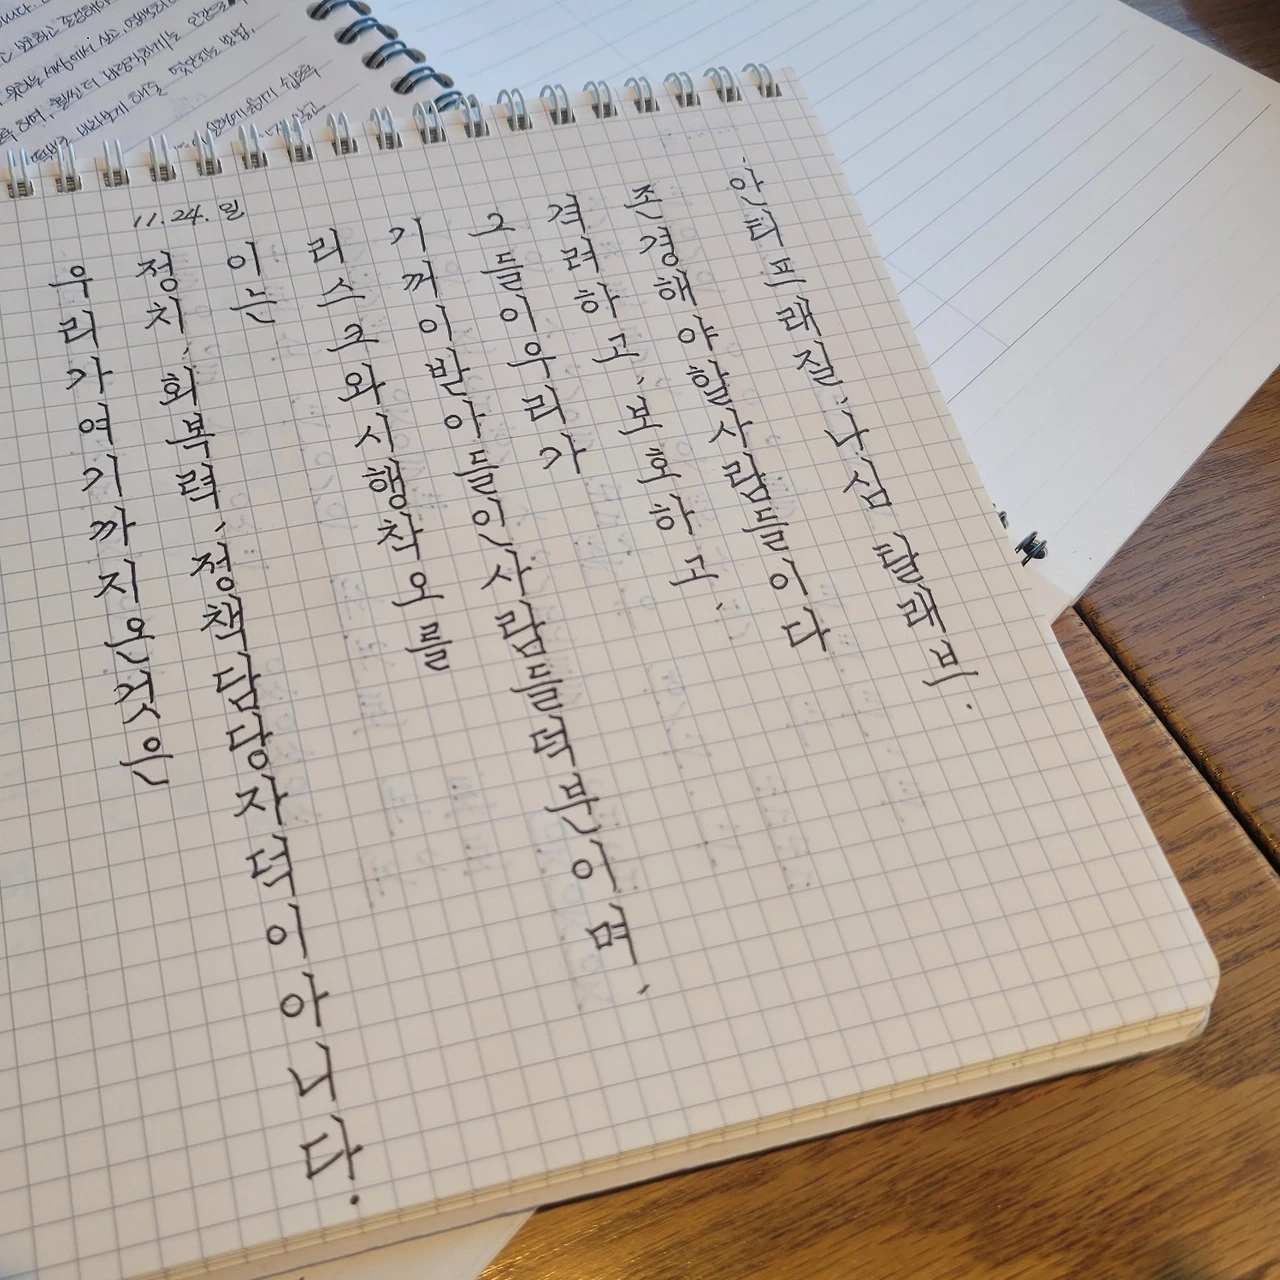 보호하고 존경해야
세상에서 살고,
하며, 훨씬 더
11.24. 일
우리가여기까지온것은
정치, 회복력, 정책담당자덕이아니다.
이는
리스크와시행착오를
기꺼이받아들인사람들덕분이며,
그들이우리가
격려하고, 보호하고,
존경해야할사람들이다
'안티프래질', 나심 탈래브.